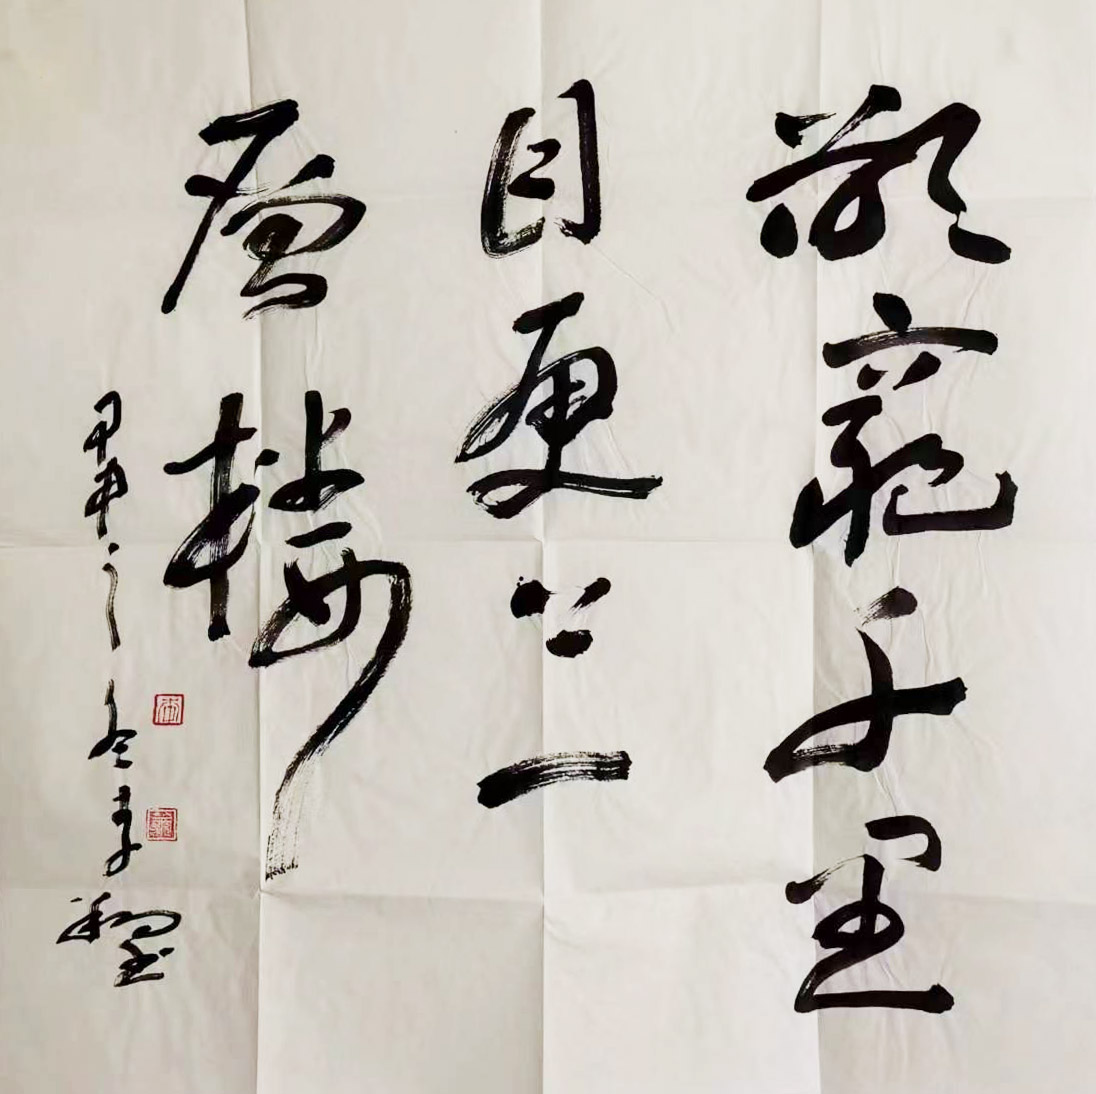 欲窮千里
目更上一
層樓
甲申之冬李